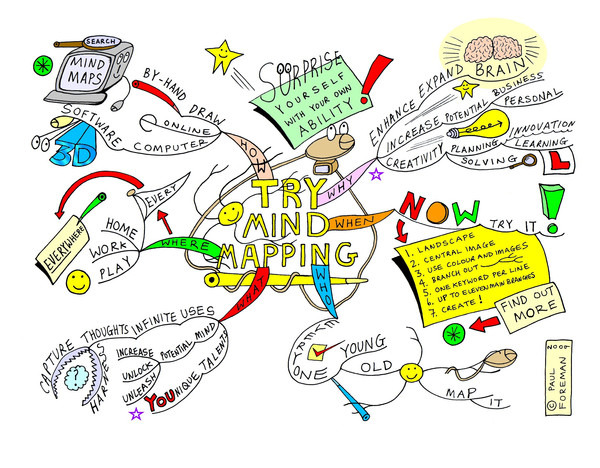 TRY
MIND
MAPPING
HOW
BY-HAND DRAW
SEARCH
MIND
MAPS
ONLINE
COMPUTER
SOFTWARE
3D
SURPRISE
YOURSELF
WITH YOUR OWN
ABILITY!
WHY
ENHANCE EXPAND BRAIN
INCREASE POTENTIAL BUSINESS
PERSONAL
CREATIVITY PLANNING INNOVATION
SOLVING LEARNING
L
WHEN
NOW
TRY IT!
1. LANDSCAPE
2. CENTRAL IMAGE
3. USE COLOUR AND IMAGES
4. BRANCH OUT
5. ONE KEYWORD PER LINE
6. UP TO ELEVEN MAIN BRANCHES
7. CREATE!
FIND OUT
MORE
WHO
EVERY
ONE
YOUNG
OLD
MAP IT
WHAT
INFINITE USES
CAPTURE THOUGHTS
HARNESS
?
POTENTIAL MIND
INCREASE
UNLOCK
UNLEASH
YOUNIQUE TALENTS
WHERE
EVERY
HOME
WORK
PLAY
EVERYWHERE
© PAUL
FOREMAN